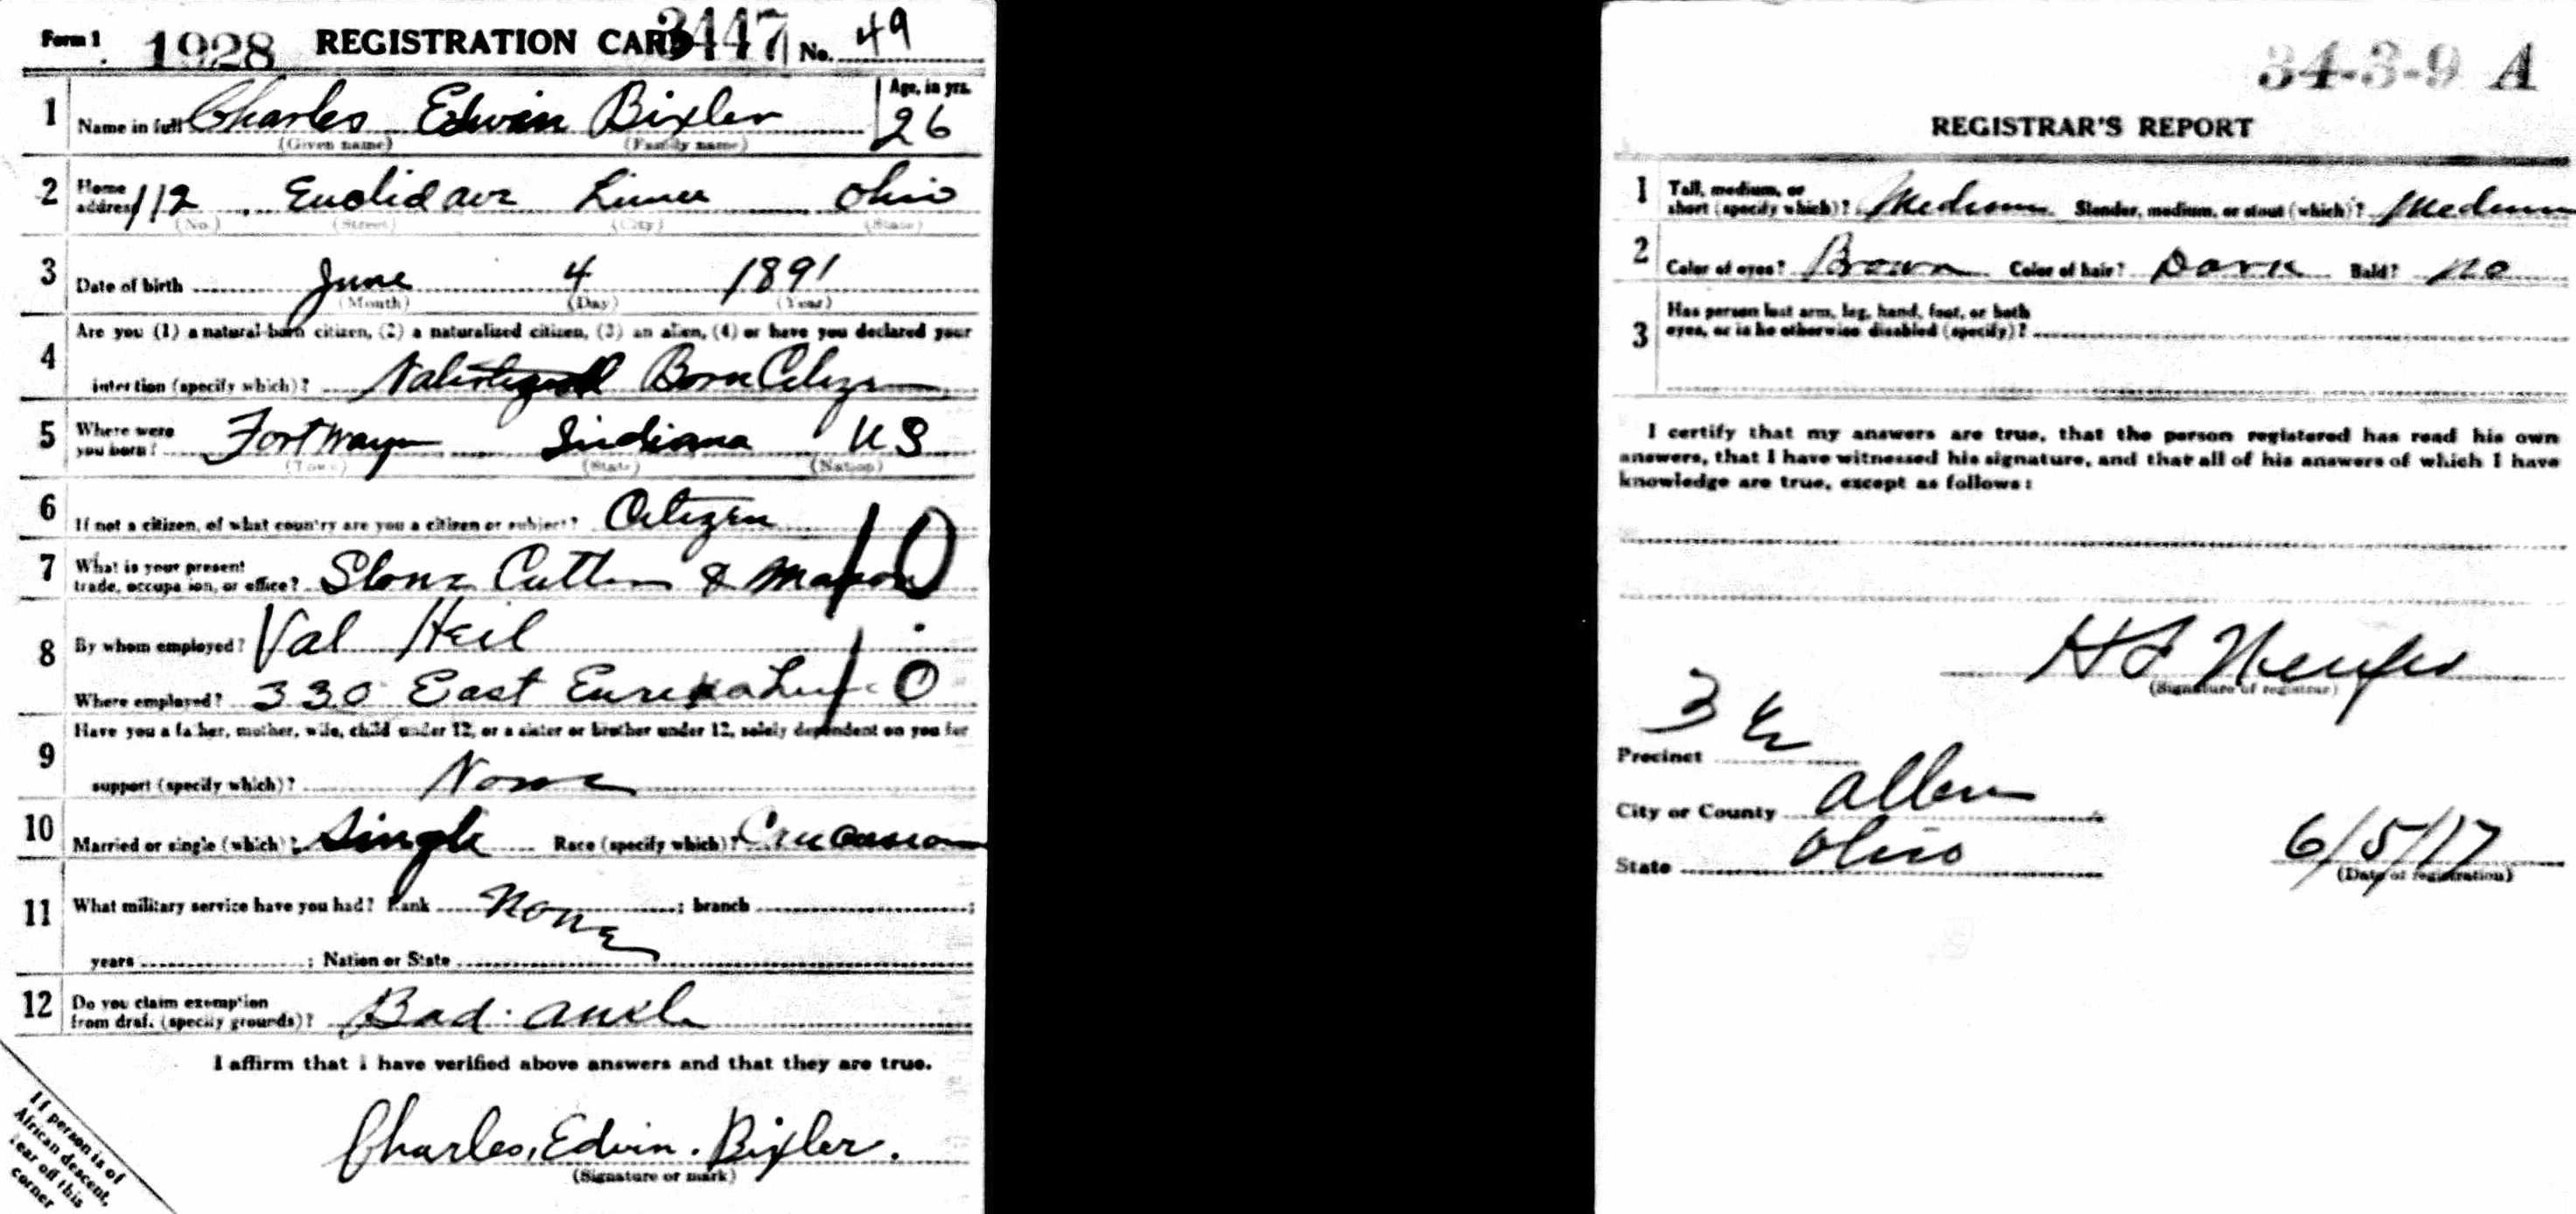 Form 1 1928 REGISTRATION CARD 3447 No. 49
1 Name in full Charles Edwin Bixler Age, in yrs. 26
(Given name) (Family name)
2 Home address 112 Euclid ave Lima Ohio
(No.) (Street) (City) (State)
3 Date of birth June 4 1891
(Month) (Day) (Year)
4 Are you (1) a natural-born citizen, (2) a naturalized citizen, (3) an alien, (4) or have you declared your
intention (specify which)? Born Citizen
5 Where were you born? Fort Wayne Indiana US
(Town) (State) (Nation)
6 If not a citizen, of what country are you a citizen or subject? Citizen
7 What is your present trade, occupation, or office? Stone Cutter & Mason 10
8 By whom employed? Val Heil
Where employed? 330 East Eureka Lima O 10
9 Have you a father, mother, wife, child under 12, or a sister or brother under 12, solely dependent on you for
support (specify which)? None
10 Married or single (which)? Single Race (specify which)? Caucasian
11 What military service have you had? Rank None ; branch ;
years ; Nation or State
12 Do you claim exemption from draft (specify grounds)? Bad. ankle
I affirm that I have verified above answers and that they are true.
Charles. Edwin. Bixler.
(Signature or mark)
If person is of
African descent,
tear off this
corner
34-3-9 A
REGISTRAR'S REPORT
1 Tall, medium, or short (specify which)? Medium Slender, medium, or stout (which)? Medium
2 Color of eyes? Brown Color of hair? Dark Bald? no
3 Has person lost arm, leg, hand, foot, or both
eyes, or is he otherwise disabled (specify)?
I certify that my answers are true, that the person registered has read his own
answers, that I have witnessed his signature, and that all of his answers of which I have
knowledge are true, except as follows:
(Signature of registrar)
Precinct 3
City or County Allen
State Ohio 6/5/17
(Date of registration)